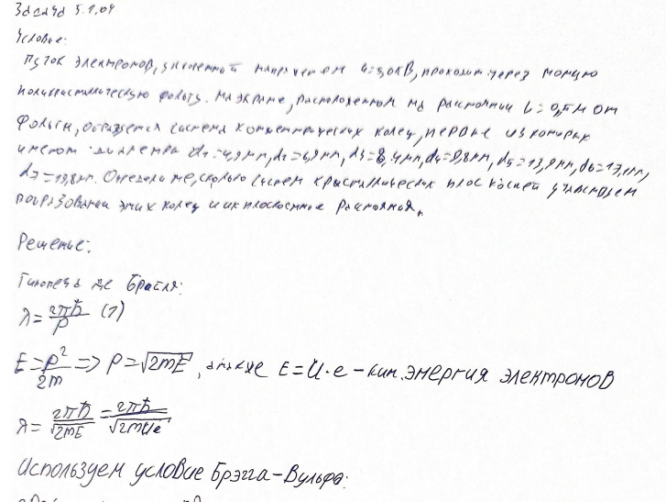 Задача 5.1.04
Условие:
Пучок электронов, ускоренный напряжением U=30кВ, проходит через тонкую
поликристаллическую фольгу. На экране, расположенном на расстоянии L=0,5м от
фольги, образуется система концентрических колец, первые из которых
имеют диаметра d1=4,9мм, d2=6,9мм, d3=8,4мм, d4=9,8мм, d5=13,9мм, d6=17,1мм,
d7=19,8мм. Определите, сколько систем кристаллических плоскостей участвует
этих колец и их расстояния.
Решение:
Гипотеза де Бройля:
λ=2πħ/P (1)
E=P²/2m => P=√2mE, E=U·e-кин. энергия электронов
λ=2πħ/√2mE=2πħ/√2mUe
Используем условие Брэгга-Вульфа: